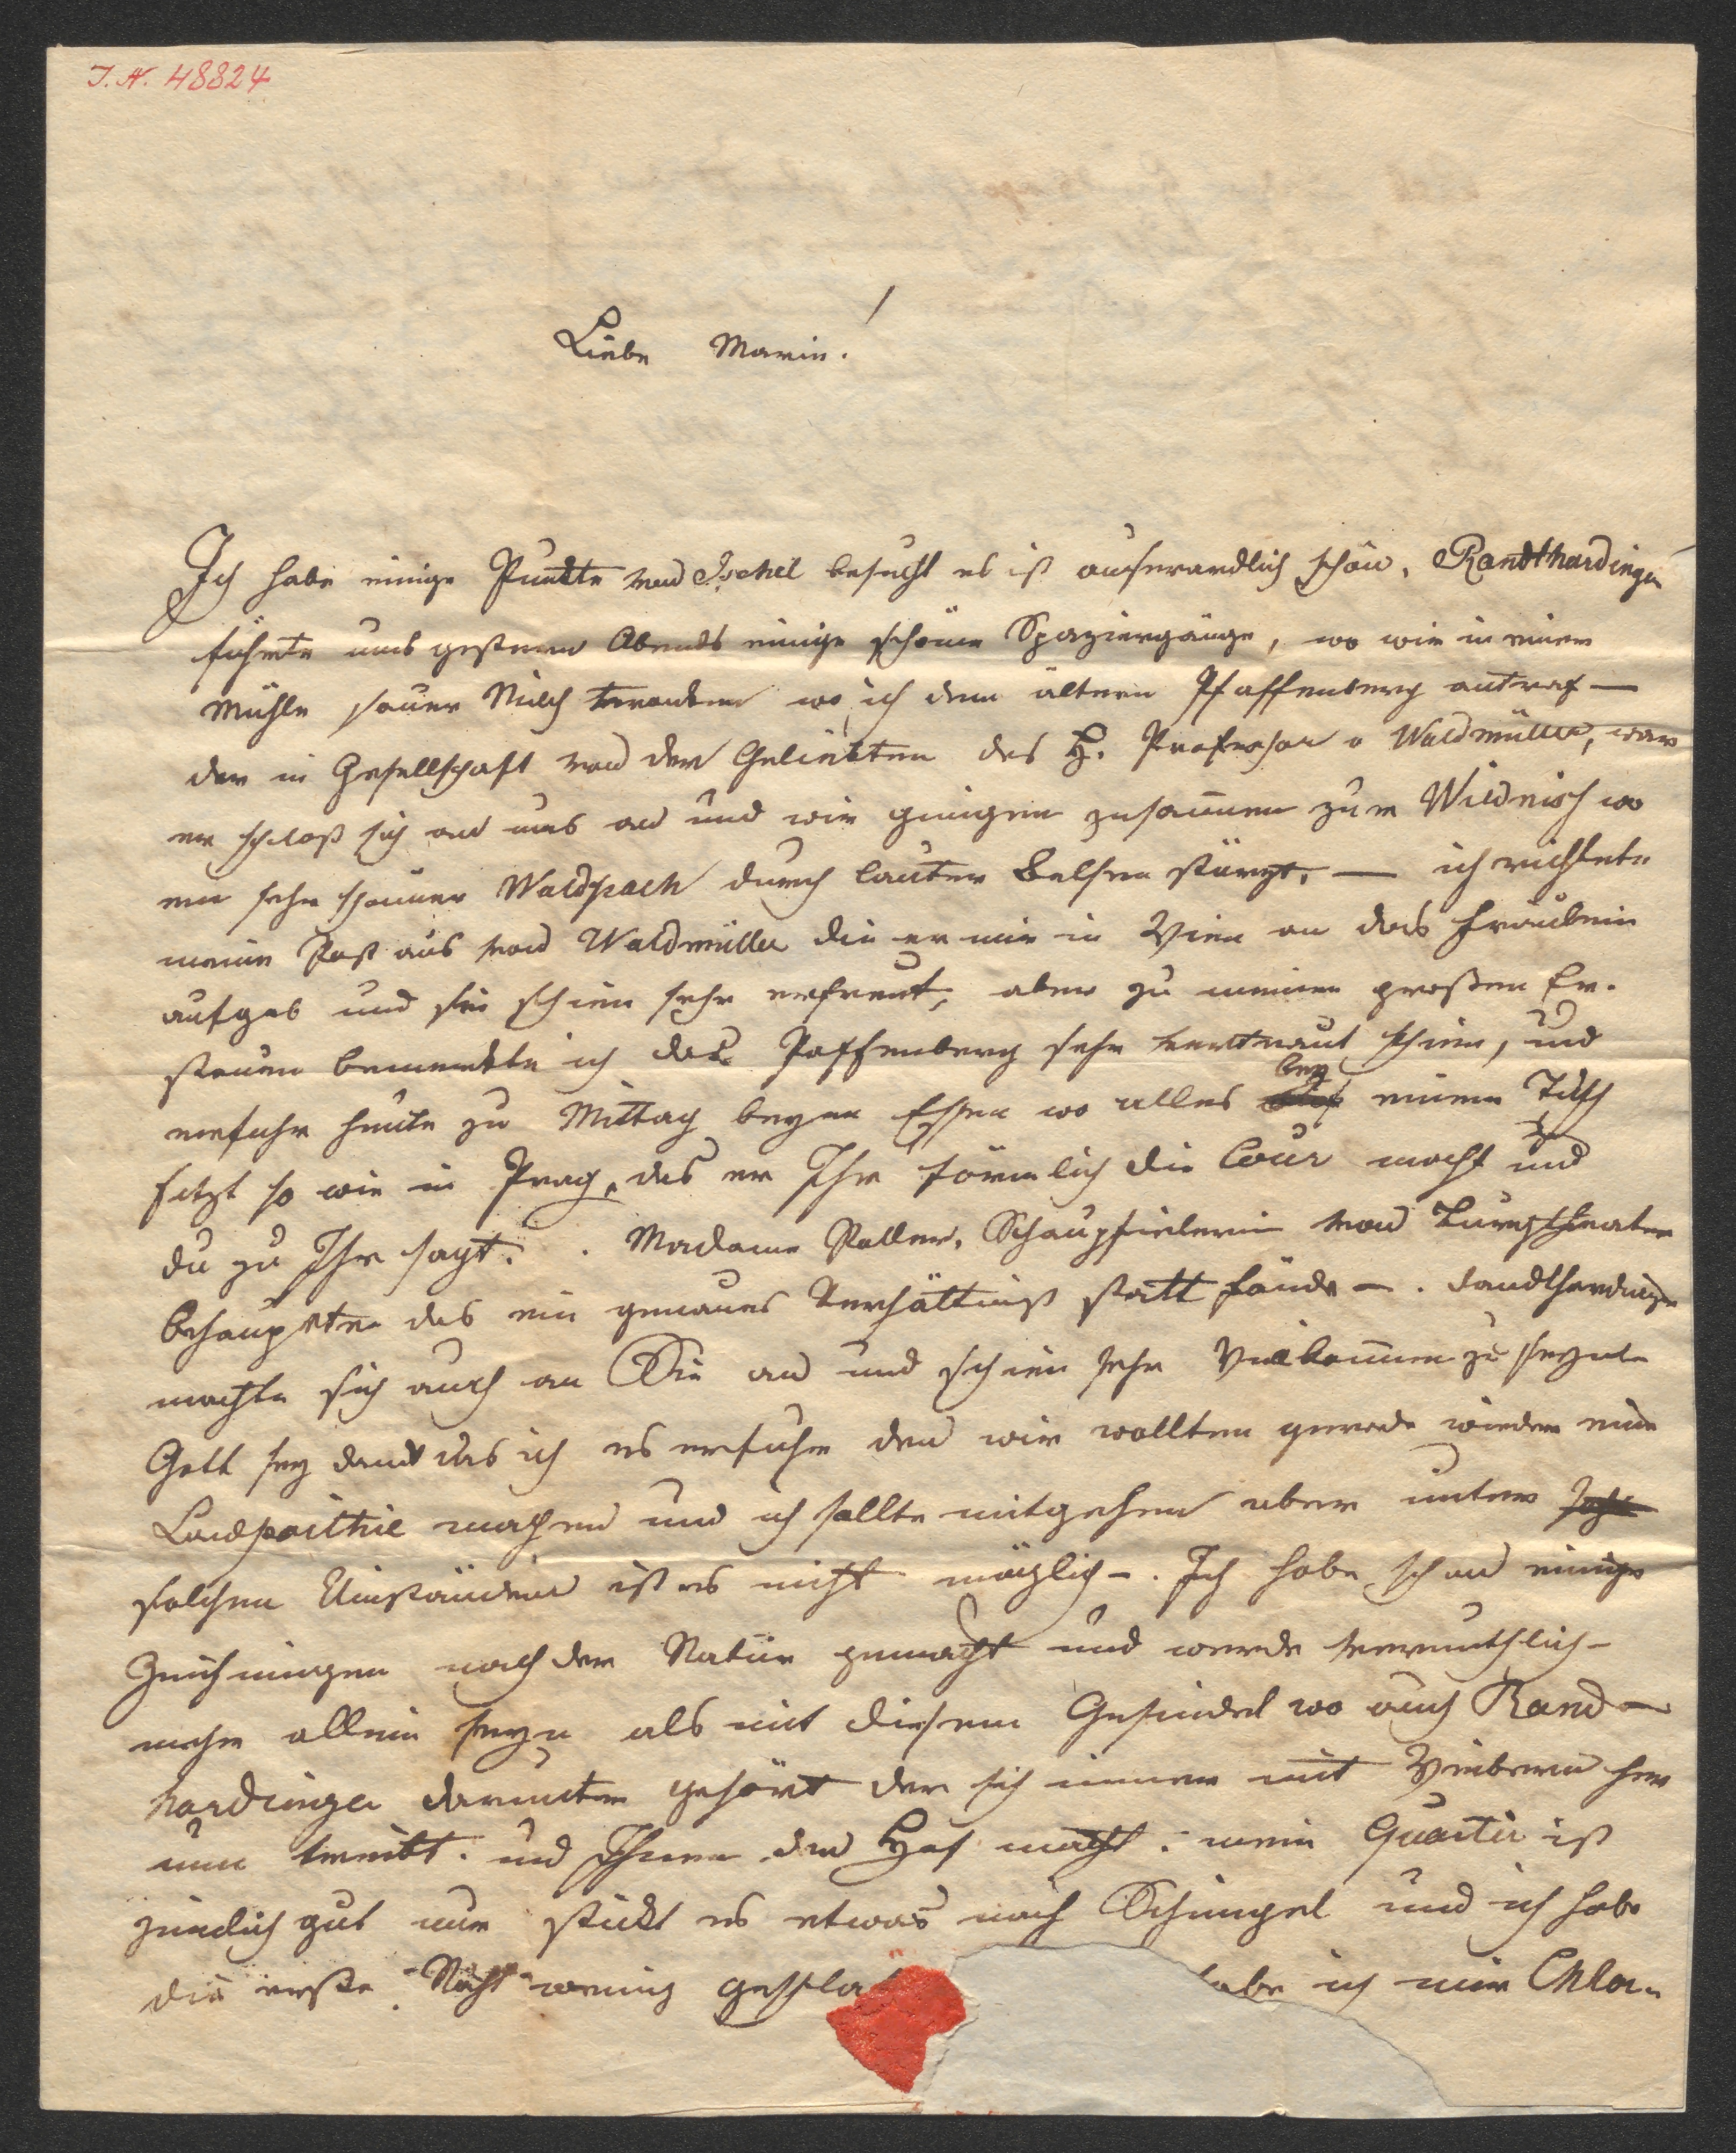 I. N. 48824
Liebe Marie!
Ich habe einige Punkte von Ischel besucht es ist auserordlich schön, Randthardinger
führte uns gestern Abends einige schöne Spaziergänge, wo wir in einer
Mühle sauer Milch tranken wo ich den ältern Pfaffenberg antraf —
der in Gesellschaft von der Geliebten des H. Professor v Waldmüller, war
er schloß sich an uns an und wir gingen zusamen zur Wildnisch wo
ein sehr schöner Waldpach durch lauter Felsen stürzt, — ich richtete
meine Post aus von Waldmüller die er mir in Wien an das Fräulein
aufgab und sie schien sehr erfreut, aber zu meinen großen Er-
staunen bemerkte ich das Paffenberg sehr vertraut schien, und
erfuhr heute zu Mittag beym Essen wo alles bey einem Tisch
sitzt so wie in Prag, das er Ihr förmlich die Cour macht und
du zu Ihr sagt. Madame Schauspielerin von Burgtheater
behauptete das ein genaues Verhältniß statt fände —. Randhardinger
machte sich auch an Sie an und schien sehr Vielkomen zu seyn
Gott sey dank das ich es erfuhr den wir wollten gerade wieder eine
Landparthie machen und ich sollte mitgehen aber unter
solchen Umständen ist es nicht möglich —. Ich habe schon einige
Zeichnungen nach der Natur gemacht und werde vermuthlich
mehr allein seyn als mit diesem Gesindel wo auch Rand-
hardinger darunter gehört der sich immer mit Weibern her
um treibt. und Ihnen den Hof macht. mein Quartir ist
zimlich gut nur stinkt es etwas nach und ich habe
die erste Nacht wenig geschla habe ich mir Chlor-